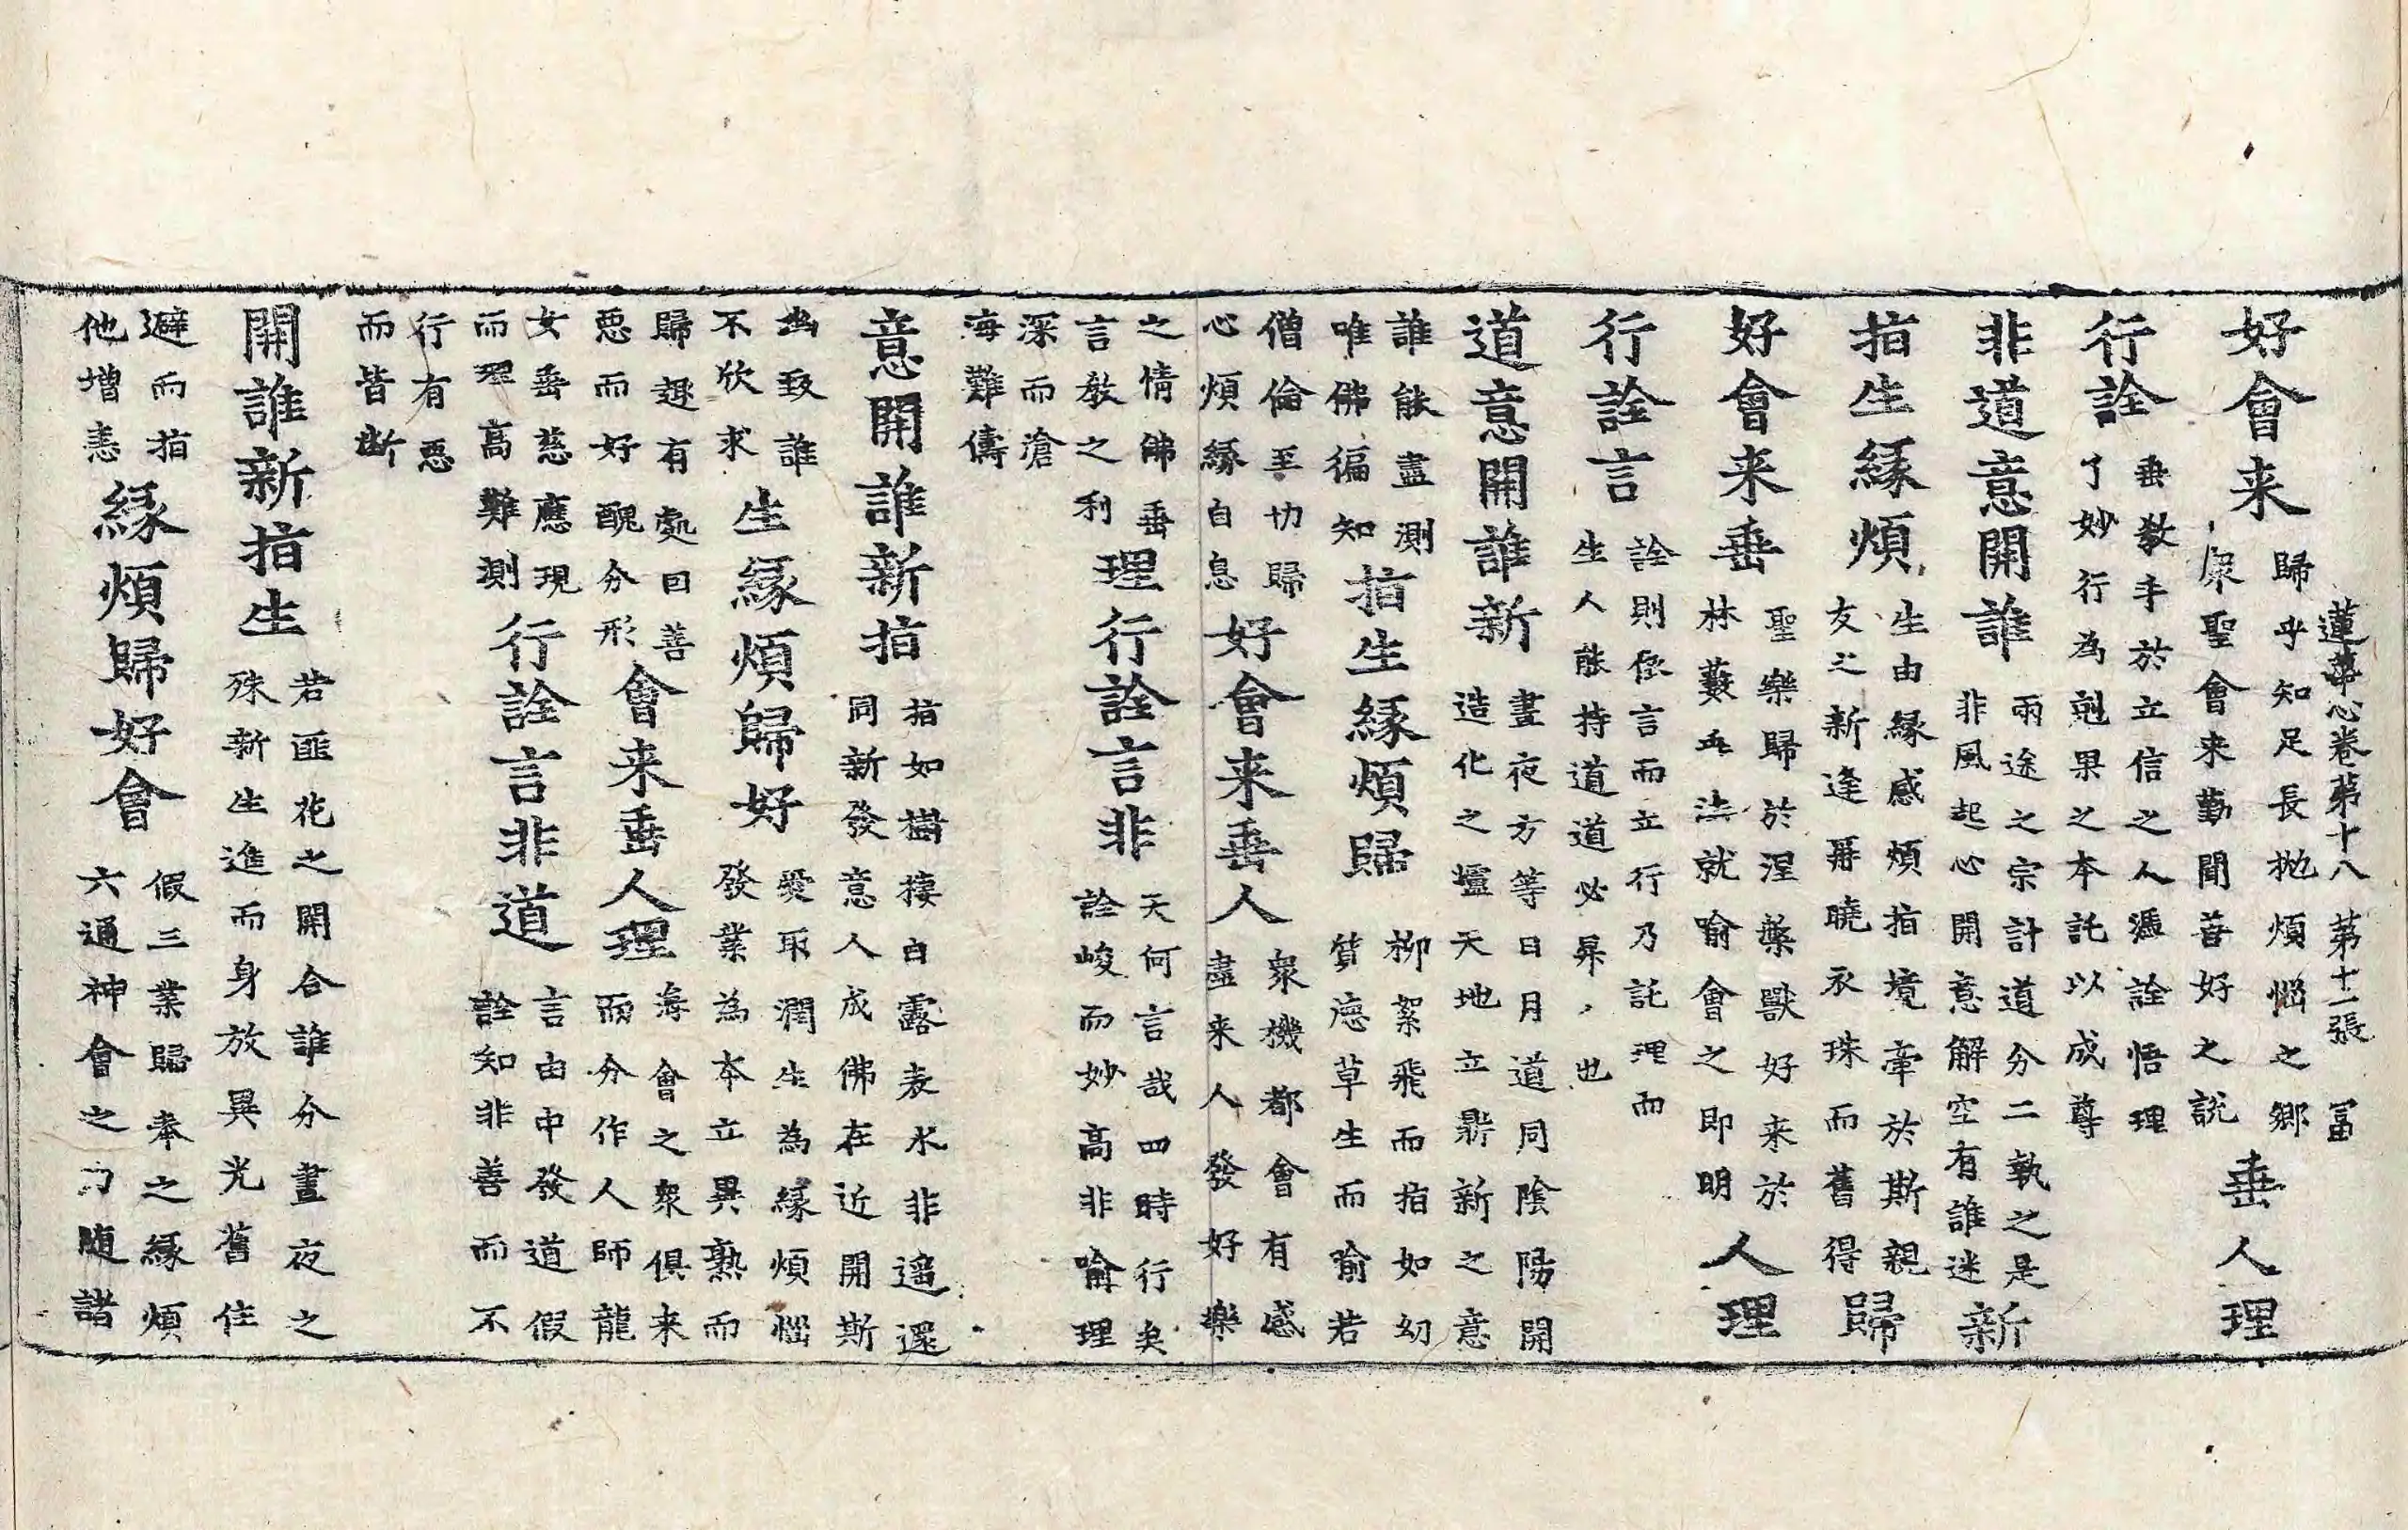 蓮華心卷苐十八 苐十一張 冨
好會来
歸乎知足長抛煩惱之鄉
康聖會来勤聞善好之説
垂人理
行詮
垂教手於立信之人憑詮悟理
了妙行為剋果之本託以成尊
非道意開誰
兩途之宗計道分二執之是
非風起心開意解空有誰迷
新
指生緣煩
生由緣感煩指境牽於斯親
友之新逢曻曉衣珠而舊得
歸
好會来垂
聖樂歸於涅槃獸好来於
林藪垂法就喻會之即明
人理
行詮言
詮則從言而立行乃託理而
生人能持道道必昇、也
道意開誰新
晝夜方等日月道同陰陽開
造化之壚天地立鼎新之意
誰能盡測
唯佛徧知
指生緣煩歸
柳絮飛而指如幻
質德草生而喻若
僧倫至切歸
心煩緣自息
好會来垂人
衆機都會有感
盡来人發好樂
之情佛垂
言教之利
理行詮言非
天何言哉四時行矣
詮峻而妙高非喻理
深而滄
海難儔
意開誰新指
指如樹棲白露表水非遥還
同新發意人成佛在近開斯
幽致誰
不欣求
生緣煩歸好
愛取潤生為緣煩惱
發業為本立異熟而
歸趣有處曰善
惡而好醜分形
會来垂人理
海會之衆俱来
而分作人師龍
女垂慈應現
而理高難測
行詮言非道
言由中發道假
詮知非善而不
行有惡
而皆断
開誰新指生
若匪花之開合誰分晝夜之
殊新生進而身放異光舊住
避而指
他增恚
緣煩歸好會
假三業歸奉之緣煩
六通神會之力随諸